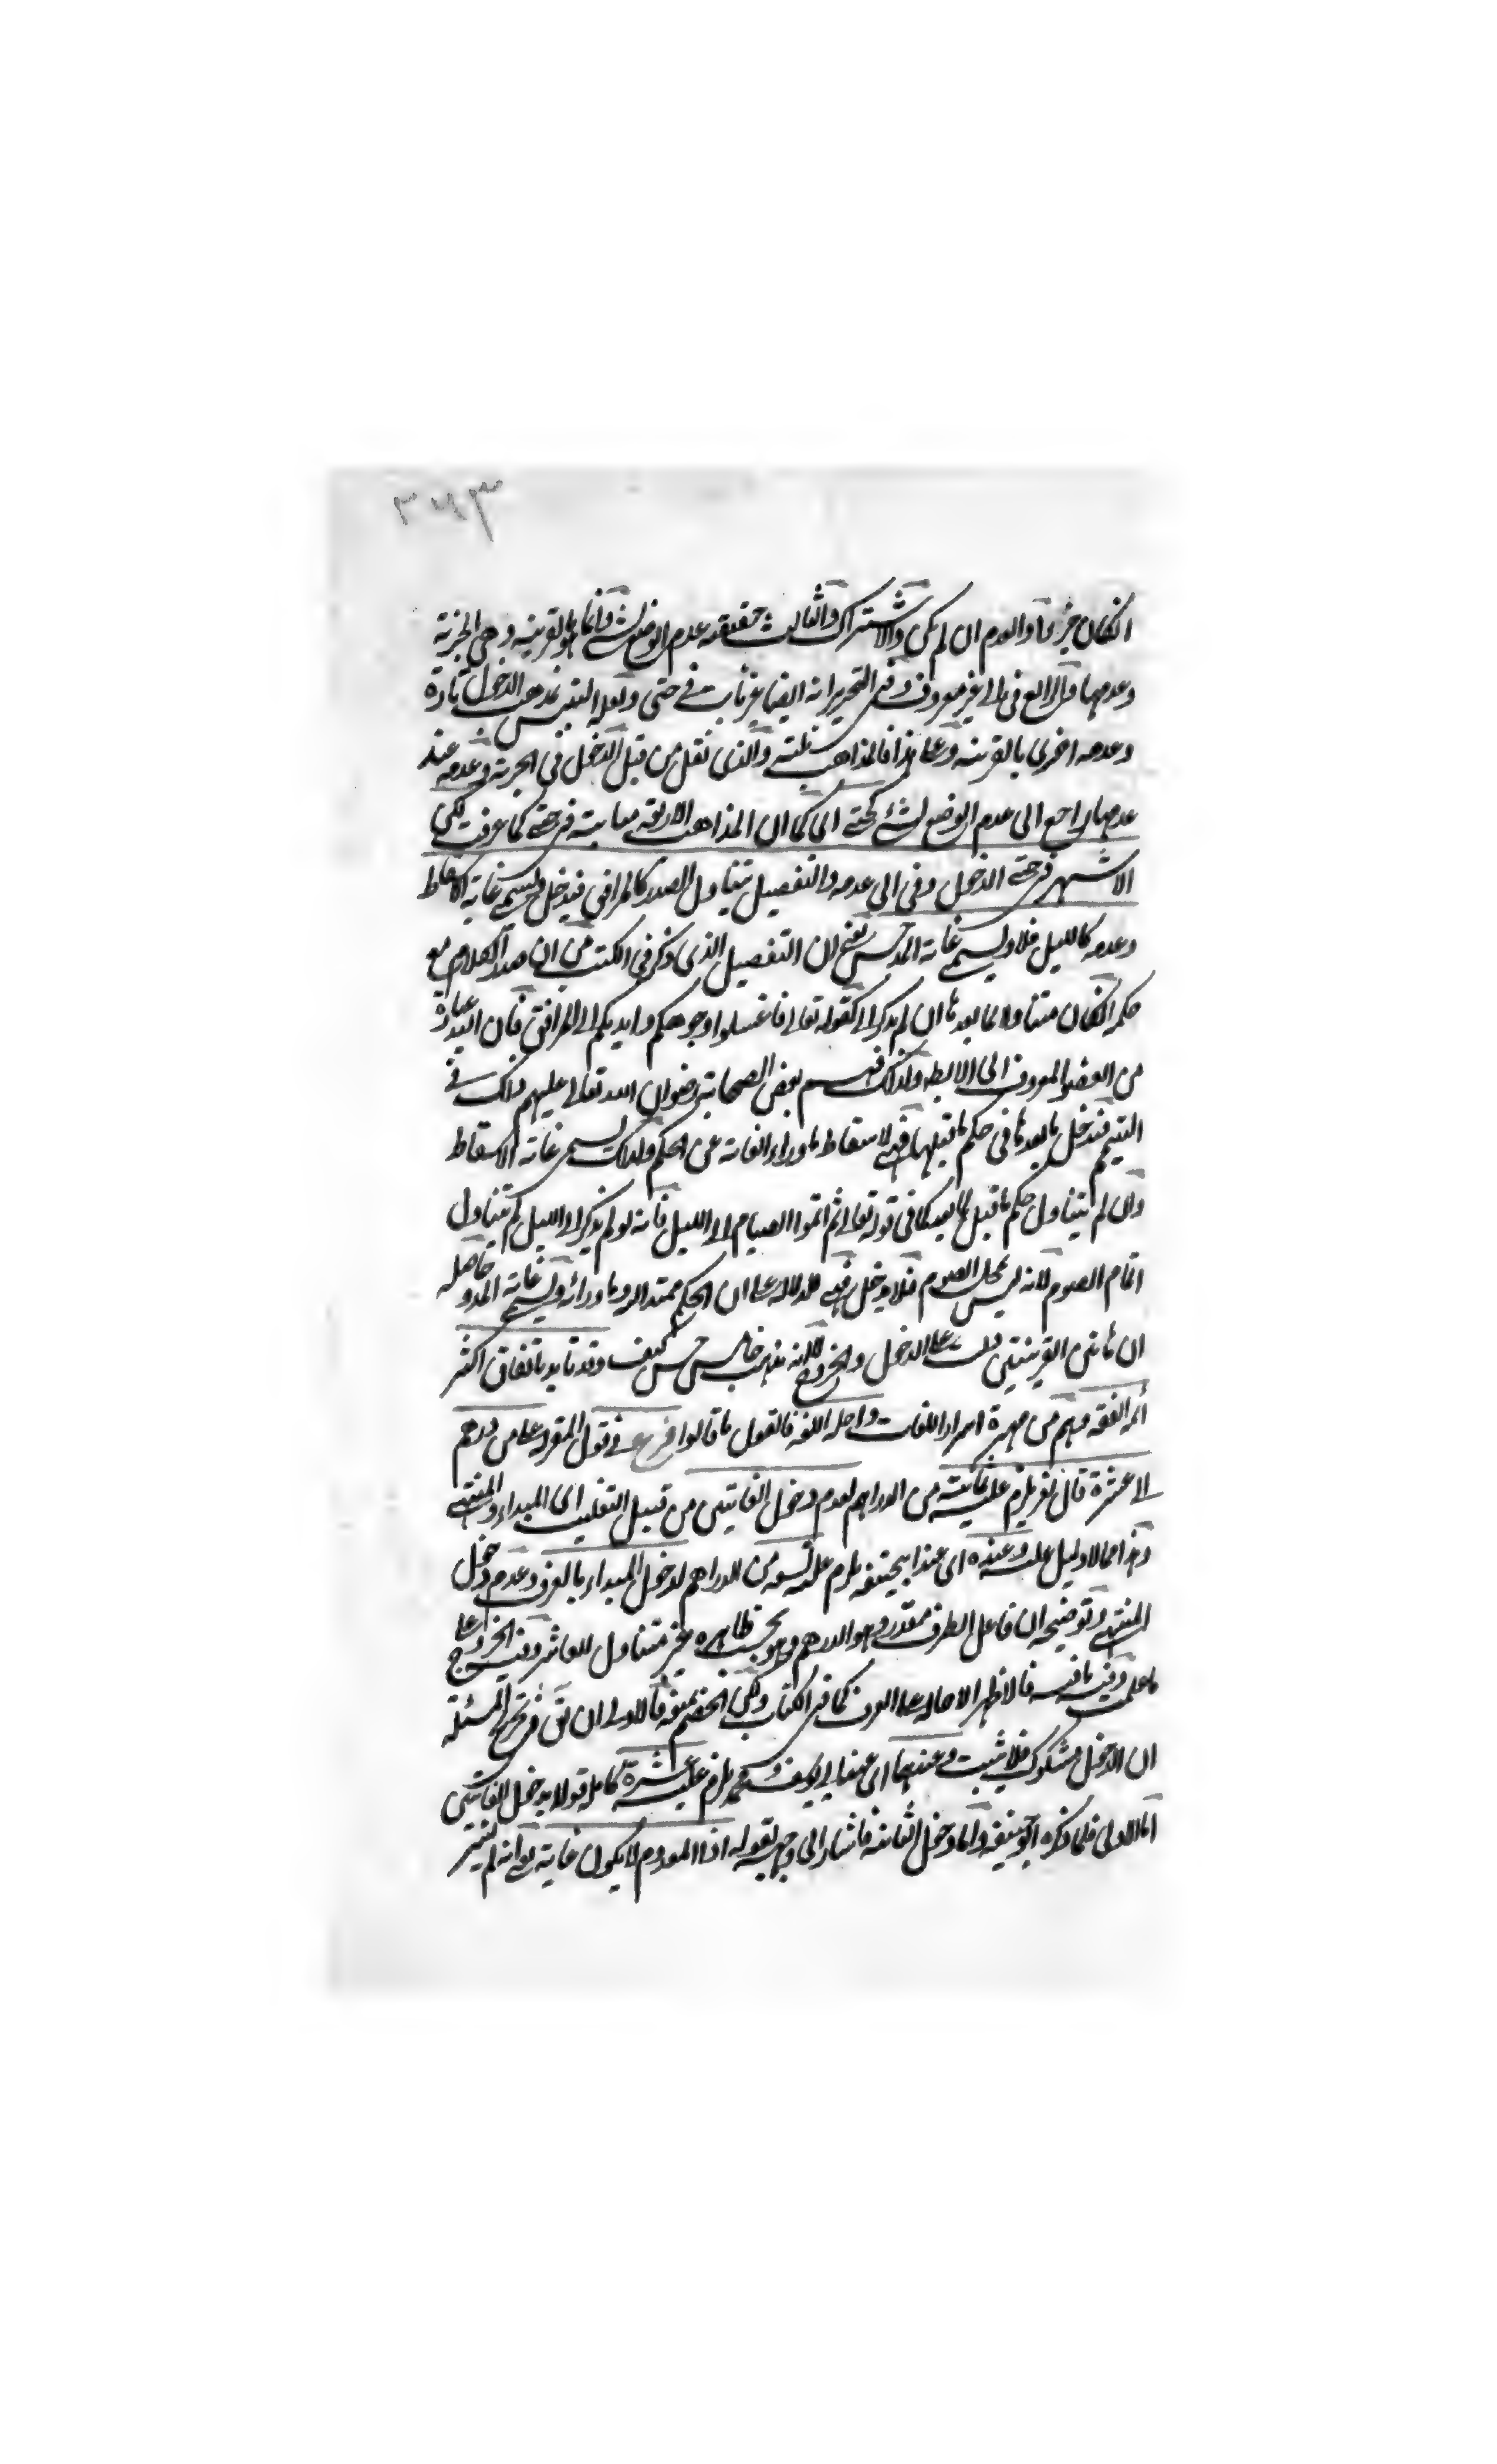 ان كان جزءا والعدم ان لم يكن والاشتراك والثالث حقيقته عدم الوضع لشئ وانما هو القرينة وهي الجزئية
وعدمها والرابع في الى غير معروف وفي التحرير انه ايضا غير ثابت في حتى ولعله التبس بمذهب الدخول تارة
وعدمه اخرى بالقرينة وعلى هذا فالمذاهب ثلثة والذي نقل من قبل الدخول في الجزئية وعدمه عند
عدمها راجع الى عدم الوضع لشئ كحتى الى كما ان المذاهب الاربعة ثابتة في حتى كما عرفت لكن
الاشهر في حتى الدخول وفي الى عدمه والتفصيل بتناول الصدر كالمرافق فيدخل ويسمى غاية الاسقاط
وعدمه كالليل فلا ويسمى غاية المد حسن يعني ان التفصيل الذي ذكر في الكتب من ان صدر الكلام مع
حكمه ان كان متناولا لما بعدها ان لم يذكر الى كقوله تعالى فاغسلوا وجوهكم وايديكم الى المرافق فان اليد عبارة
من العضو المعروف الى الابط ولذلك فهم بعض الصحابة رضوان الله تعالى عليهم ذلك في
التيمم فيدخل ما بعدها في حكم ما قبلها فهي لاسقاط ما وراء الغاية عن الحكم ولذلك يسمى غاية الاسقاط
وان لم يتناول حكم ما قبل لما بعد كما في قوله تعالى ثم اتموا الصيام الى الليل فانه لو لم يذكر الى الليل لم يتناول
اتمام الصوم لانه ليس محل الصوم فلا يدخل فهي للدلالة على ان الحكم ممتد اليه وما ورائه ويسمى غاية المد وحاصله
ان هاتين القرينتين على الدخول والخروج لا انه مذهب خامس حسن كيف وقد تايد باتفاق اكثر
أئمة الفقه وهم من مهرة اسرار اللغات واجلة اللغة فالقول ما قالوا فرع في قول المقر له علي من درهم
الى عشرة قال زفر يلزم عليه ثمانية من الدراهم لعدم دخول الغايتين من قبيل التغليب اي المبداء والمنتهى
وهذا مما لا دليل عليه وعنده اي عند ابيحنيفه يلزم عليه تسعة من الدراهم لدخول المبداء بالعرف وعدم دخول
المنتهى وتوضيحه ان فاعل الظرف مقدر وهو الدرهم وهو بحسب ظاهره غير متناول للعاشر الخروج على
ما علمت وفيه ما فيه فالاظهر الاحالة على العرف كما في الكتاب ولكن الخصم يمنعه فالاولى ان يق في تخريج المسئلة
ان الدخول مشكوك فلا يثبت وعندهما اي عند ابي يوسف ومحمد يلزم عليه عشرة كاملة قولا بدخول الغايتين
اما الاولى فلما ذكره ابو حنيفة واما دخول الثانية فاشار الى وجهه بقوله اذا المعدوم لا يكون غاية يعني انه لم